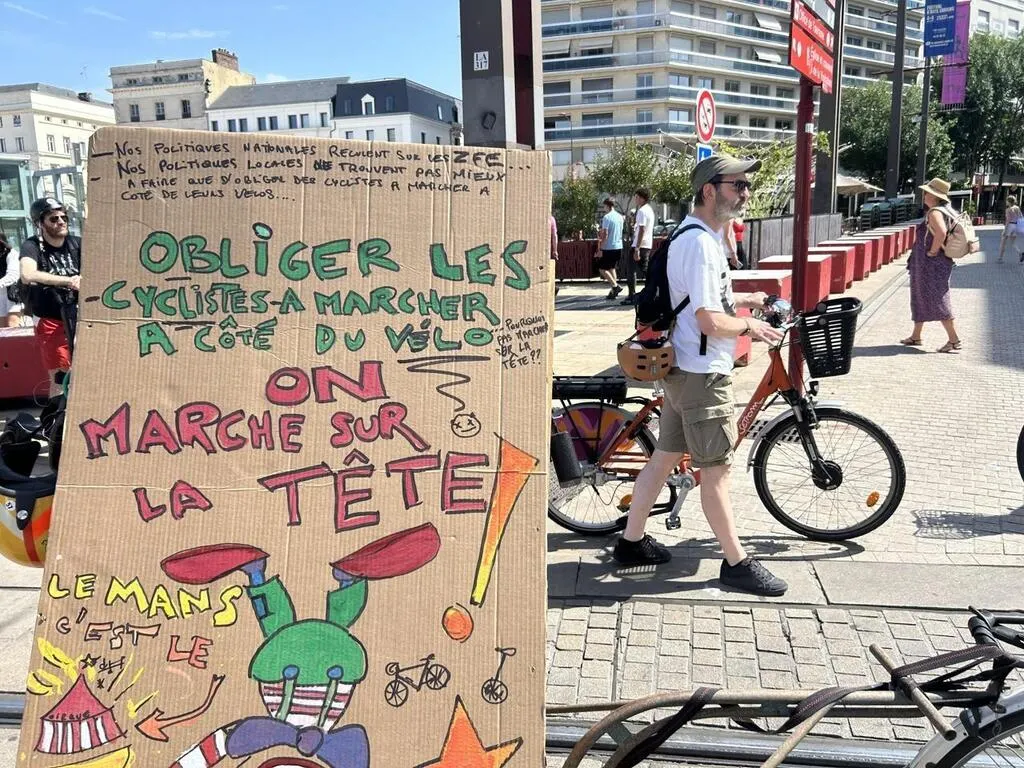 — NOS POLITIQUES NATIONALES RECULENT SUR LES ZFE...
NOS POLITIQUES LOCALES NE TROUVENT PAS MIEUX
- A FAIRE QUE D'OBLIGER DES CYCLISTES A MARCHER A
COTÉ DE LEURS VÉLOS....
OBLIGER LES
-CYCLISTES-A MARCHER
A CÔTÉ DU VÉLO
...POURQUOI
PAS MARCHER
SUR LA
TÊTE??
ON
MARCHE SUR
LA TÊTE!
LE MANS
C'EST LE
CIRQUE
LA
317